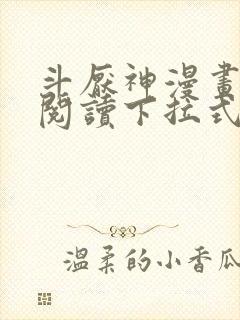 斗厭神漫畫
閱讀下拉式
溫柔的小香瓜